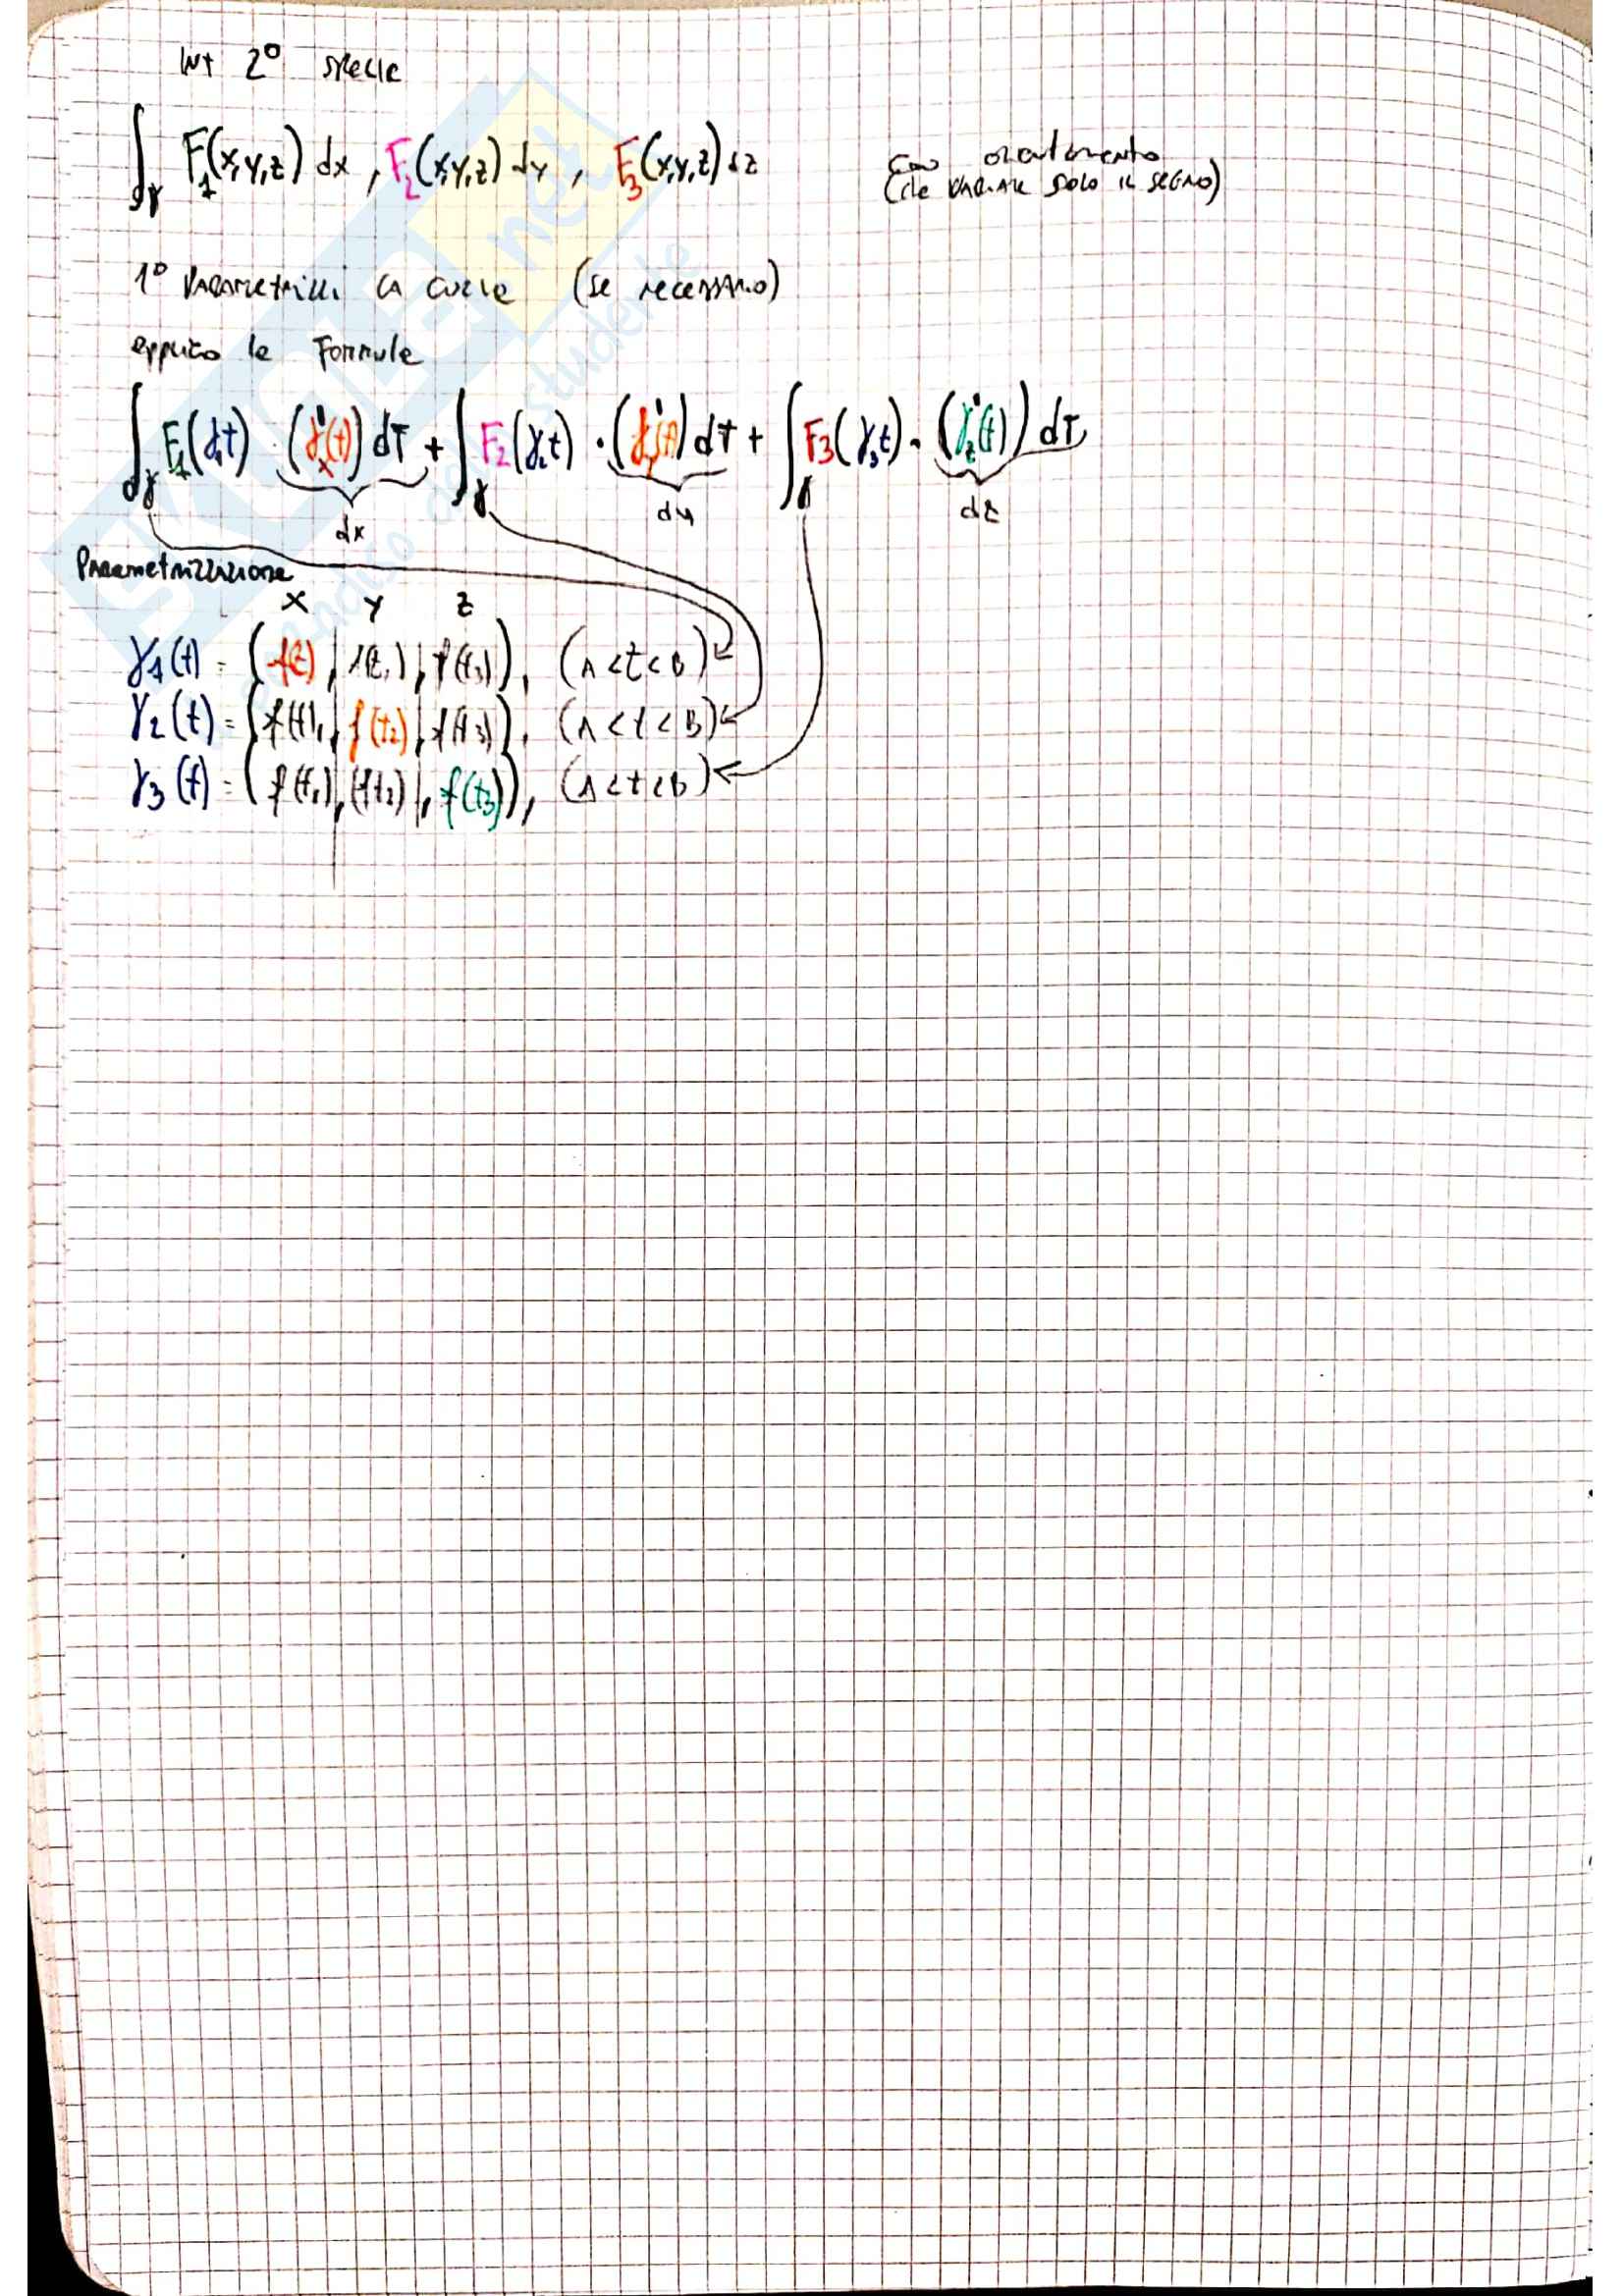 Int 2° specie
∫γ F1(x,y,z) dx , F2(x,y,z) dy , F3(x,y,z) dz
con orientamento
(che variare solo il segno)
1° Parametrizzi la curva (se necessario)
applico la Formula
∫γ F1(γ1t) · (γ'x(t)) dt + ∫γ F2(γ2t) · (γ'y(t)) dt + ∫γ F3(γ3t) · (γ'z(t)) dt
dx dy dz
Parametrizzazione
x y z
γ1(t) = (f(t), f(t2), f(t3)), (A < t < B)
γ2(t) = (f(t1), f(t2), f(t3)), (A < t < B)
γ3(t) = (f(t1), f(t2), f(t3)), (A < t < B)
skuola.net